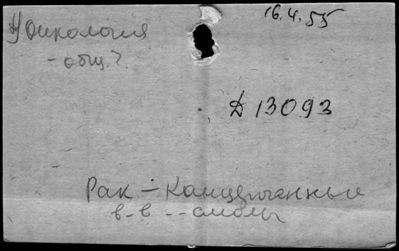 16.4.55
Онкология
- общ.?
Д 13093
Рак - Канцерогенные
в-в -- смолы